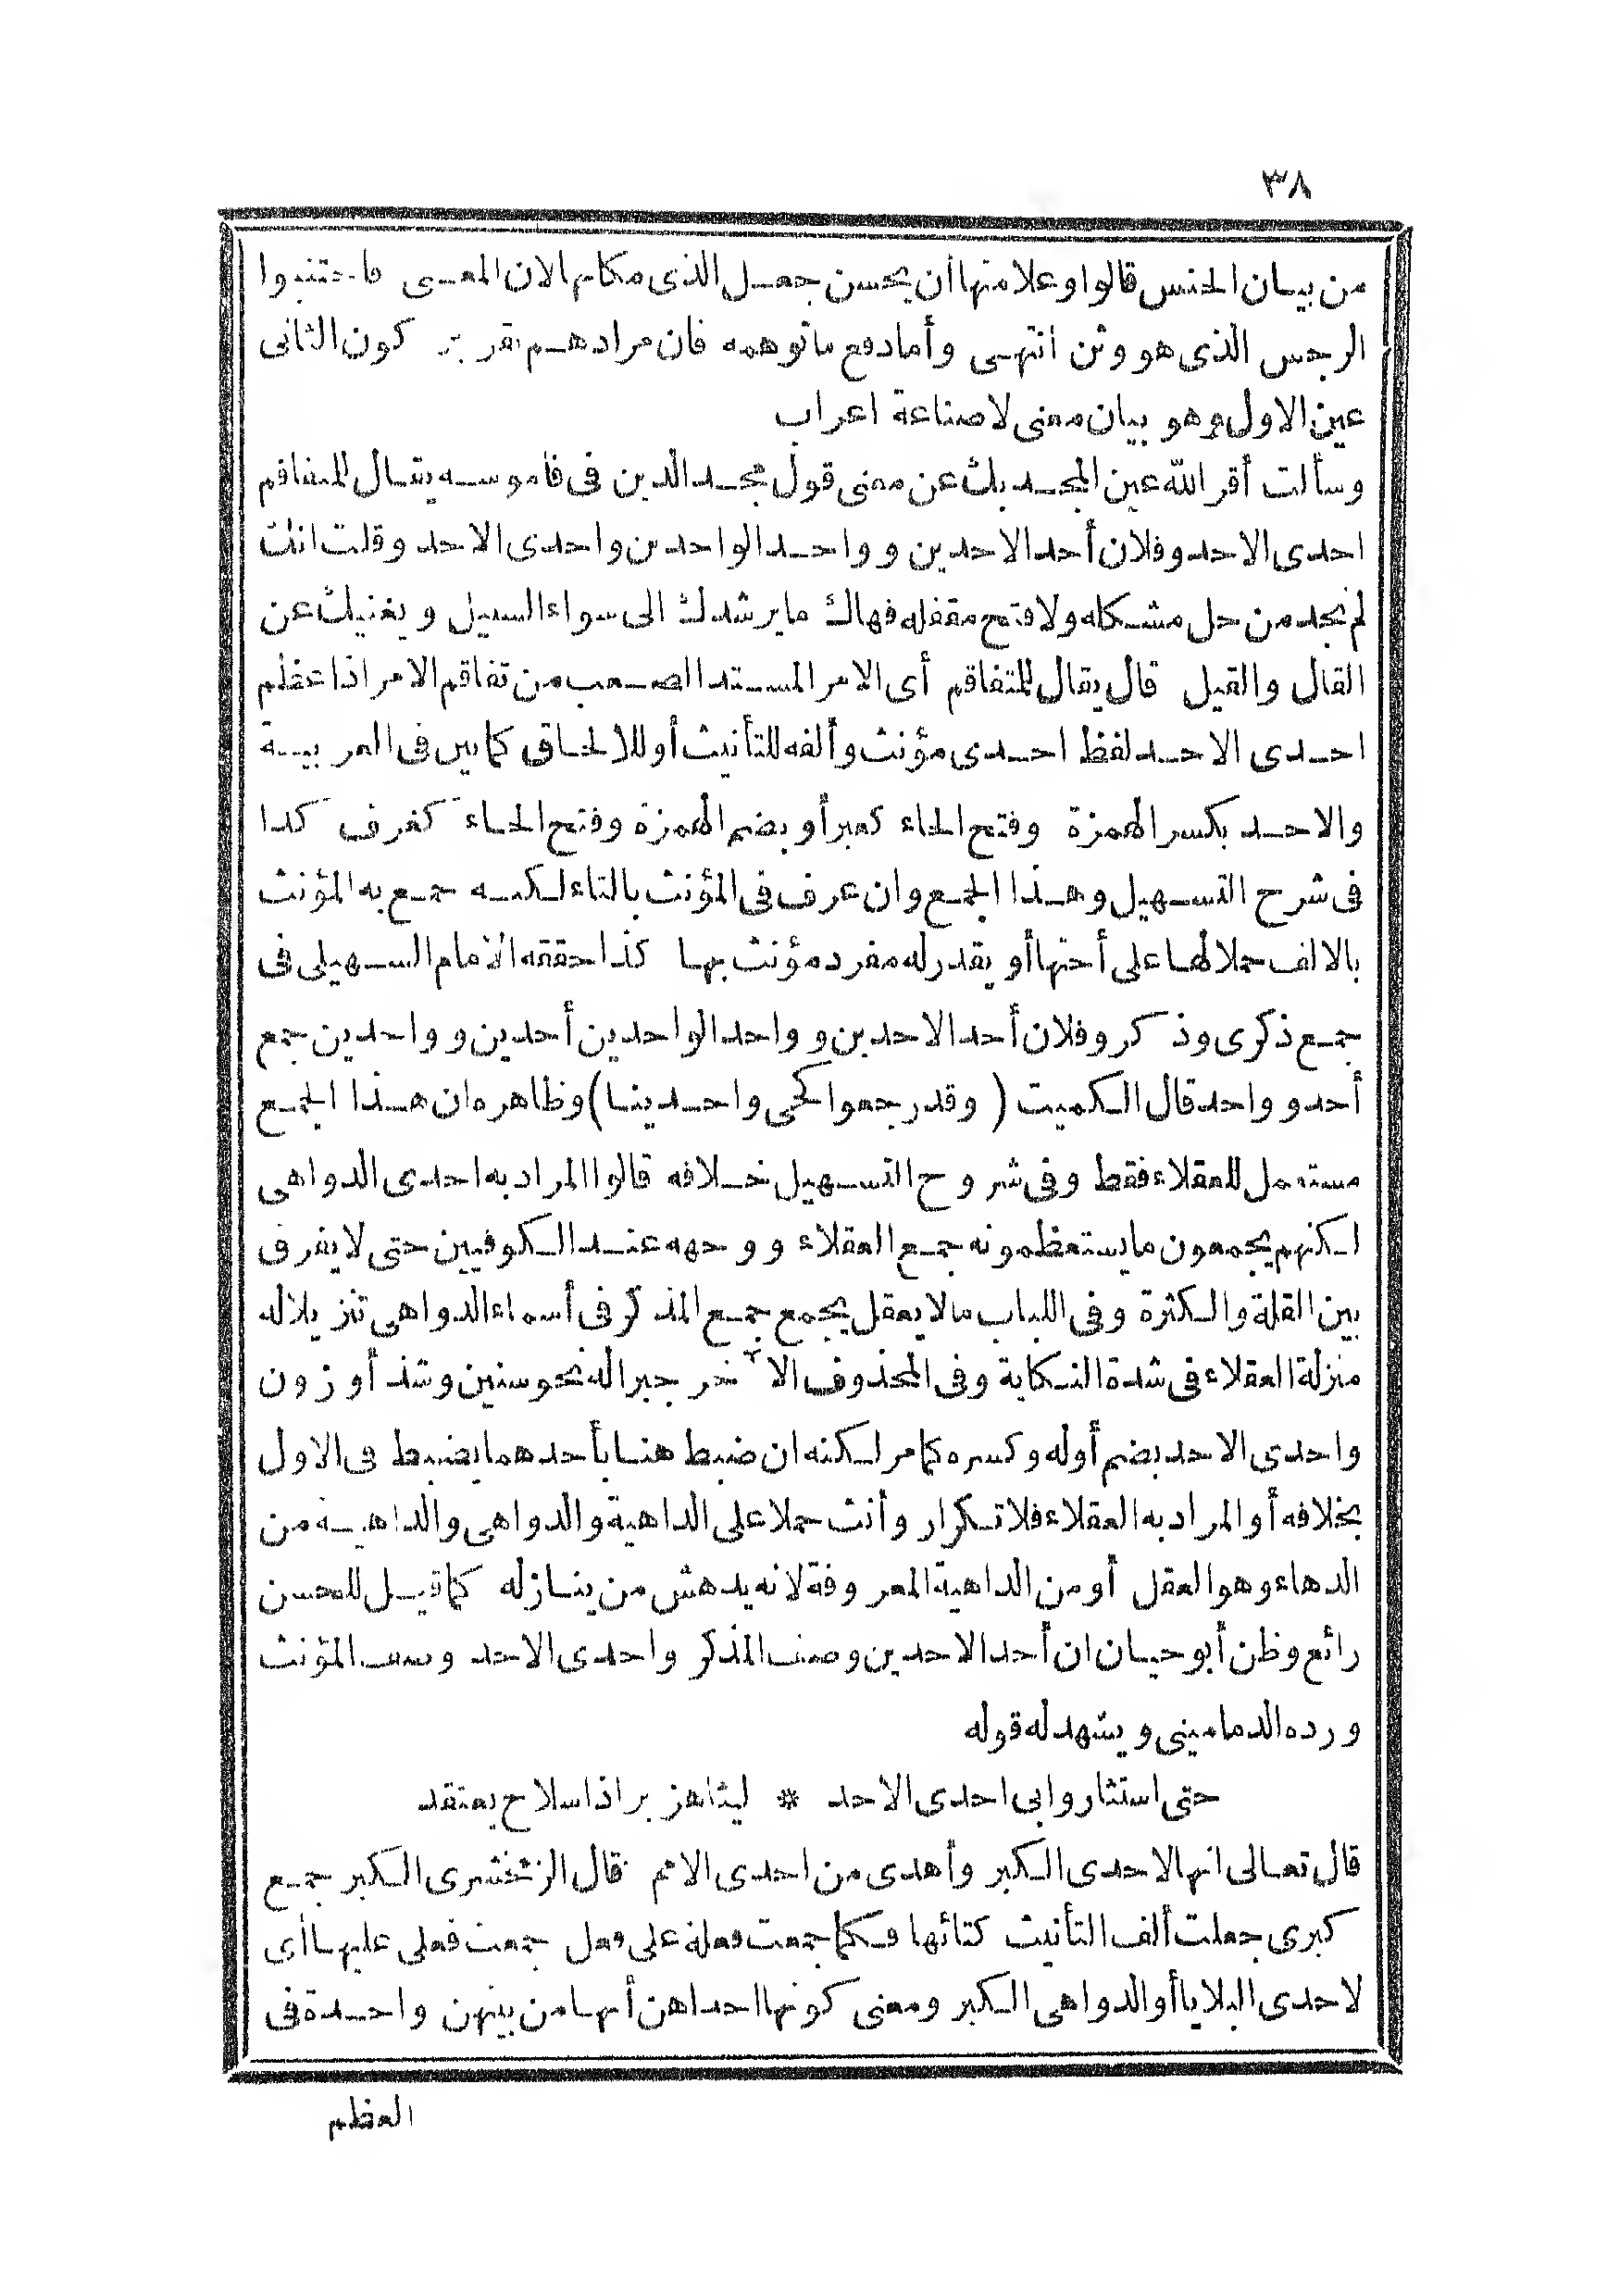 ٣٨
من بيان الجنس قالوا وعلامتها أن يحسن جعل الذى مكانها لان المعنى فاجتنبوا
الرجس الذى هو وثن انتهى وأما دفع ماتوهمه فان مرادهم تقرير كون الثانى
عين الاول وهو بيان معنى لا صناعة اعراب
وسألت أقر الله عين المجد بك عن معنى قول مجد الدين فى قاموسه يقال للمتفاقم
احدى الاحد وفلان أحد الاحدين وواحد الواحدين واحدى الاحد وقلت انك
لم تجد من حل مشكله ولا فتح مقفله فهاك مايرشدك الى سواء السبيل ويغنيك عن
القال والقيل قال يقال للمتفاقم أى الامر المستد الصعب من تفاقم الامر اذا عظم
احدى الاحد لفظ احدى مؤنث وألفه للتأنيث أو للالحاق كما بين فى العربية
والاحد بكسر الهمزة وفتح الحاء كعبر أو بضم الهمزة وفتح الحاء كغرف كذا
فى شرح التسهيل وهذا الجمع وان عرف فى المؤنث بالتاء لكنه جمع به المؤنث
بالالف حملا لها على أختها أو يقدر له مفرد مؤنث بها كذا حققه الامام السهيلى فى
جمع ذكرى وذكر وفلان أحد الاحدين وواحد الواحدين أحدين وواحدين جمع
أحد وواحد قال الكميت (وقد رجعوا كحى واحدينا) وظاهره ان هذا الجمع
مستعمل للعقلاء فقط وفى شروح التسهيل خلافه قالوا المراد به احدى الدواهى
لكنهم يجمعون مايستعظمونه جمع العقلاء ووجهه عند الكوفيين حتى لا يفرق
بين القلة والكثرة وفى اللباب مالا يعقل يجمع جمع المذكر فى أسماء الدواهى تنزيلا له
منزلة العقلاء فى شدة النكاية وفى المحذوف الآخر جبرا له نحو سنين وشذ أوزون
واحدى الاحد بضم أوله وكسره كما مر لكنه ان ضبط هنا بأحدهما يضبط فى الاول
بخلافه أو المراد به العقلاء فلا تكرار وأنث حملا على الداهية والدواهى والداهية من
الدهاء وهو العقل أو من الداهية المعروفة لانه يدهش من ينازله كما قيل للمحسن
رائع وظن أبو حيان ان أحد الاحدين وصف المذكر واحدى الاحد وصف المؤنث
ورده الدمامينى ويشهد له قوله
حتى استثاروا بى احدى الاحد * ليثا هزبرا ذا سلاح يعتقد
قال تعالى انها لاحدى الكبر وأهدى من احدى الامم قال الزمخشرى الكبر جمع
كبرى جعلت ألف التأنيث كتائها فكما جمعت فعلة على فعل جمعت فعلى عليها أى
لاحدى البلايا أو الدواهى الكبر ومعنى كونها احداهن أنها من بينهن واحدة فى
العظم